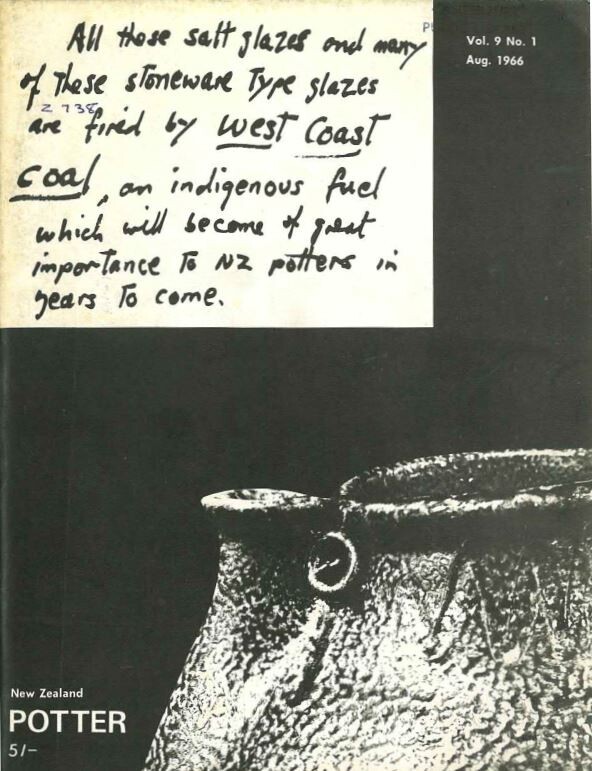 All those salt glazes and many
of these stoneware Type glazes
are fired by West Coast
Coal, an indigenous fuel
which will become of great
importance to NZ potters in
years to come.
Vol. 9 No. 1
Aug. 1966
New Zealand
POTTER
5/-